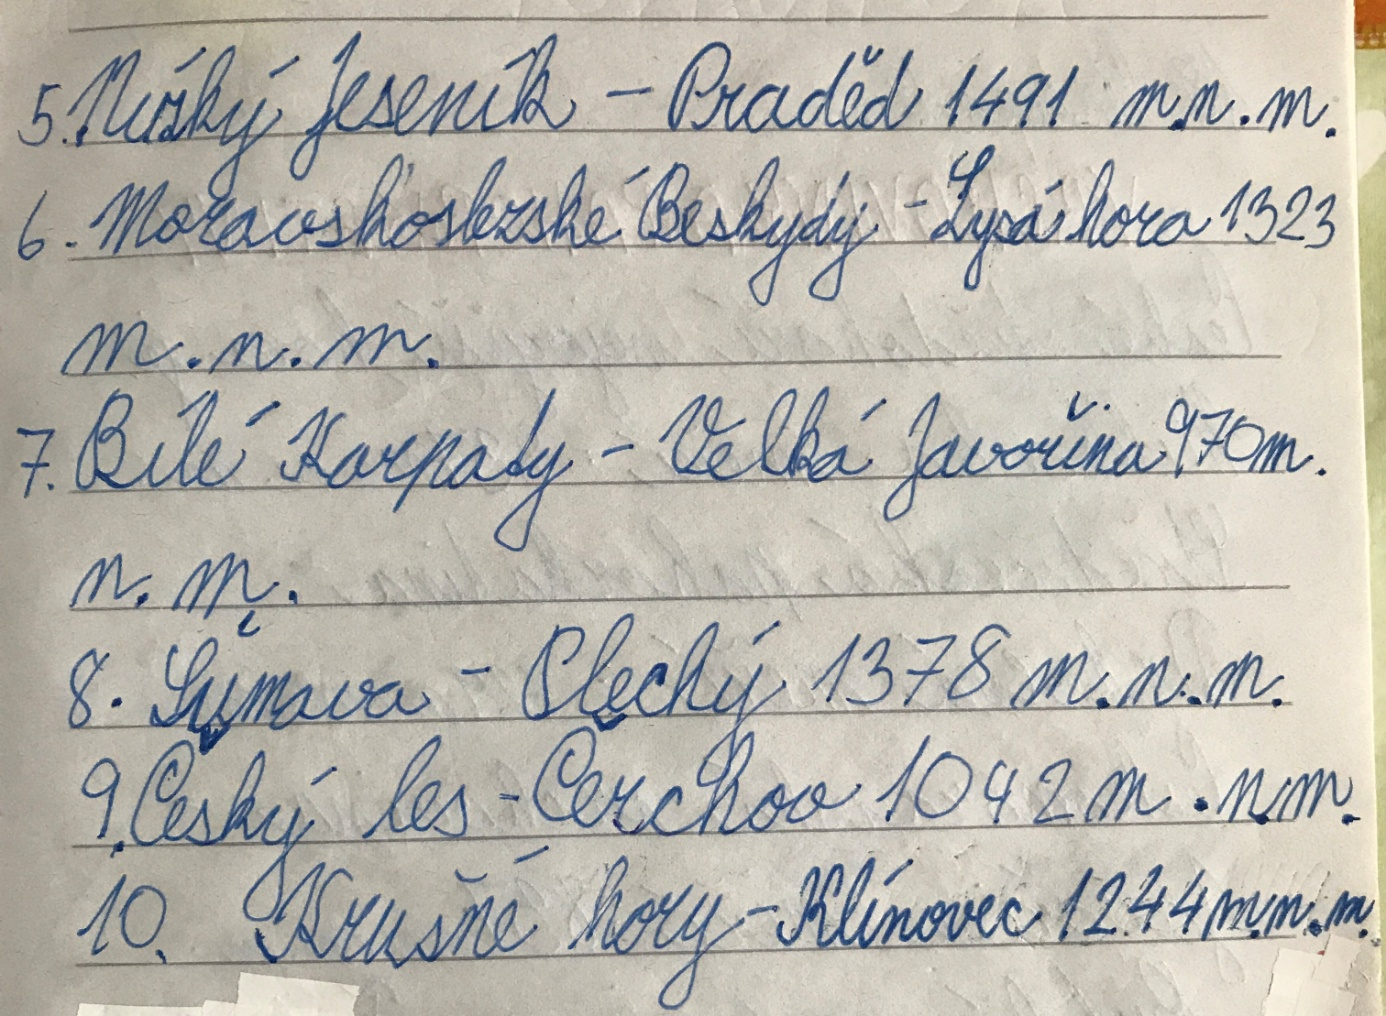 5. Nízký Jeseník - Praděd 1491 m.n.m.
6. Moravskoslezské Beskydy - Lysá hora 1323
m.n.m.
7. Bílé Karpaty - Velká Javořina 970 m.
n.m.
8. Šumava - Plechý 1378 m.n.m.
9. Český les - Čerchov 1042 m.n.m.
10. Krušné hory - Klínovec 1244 m.n.m.